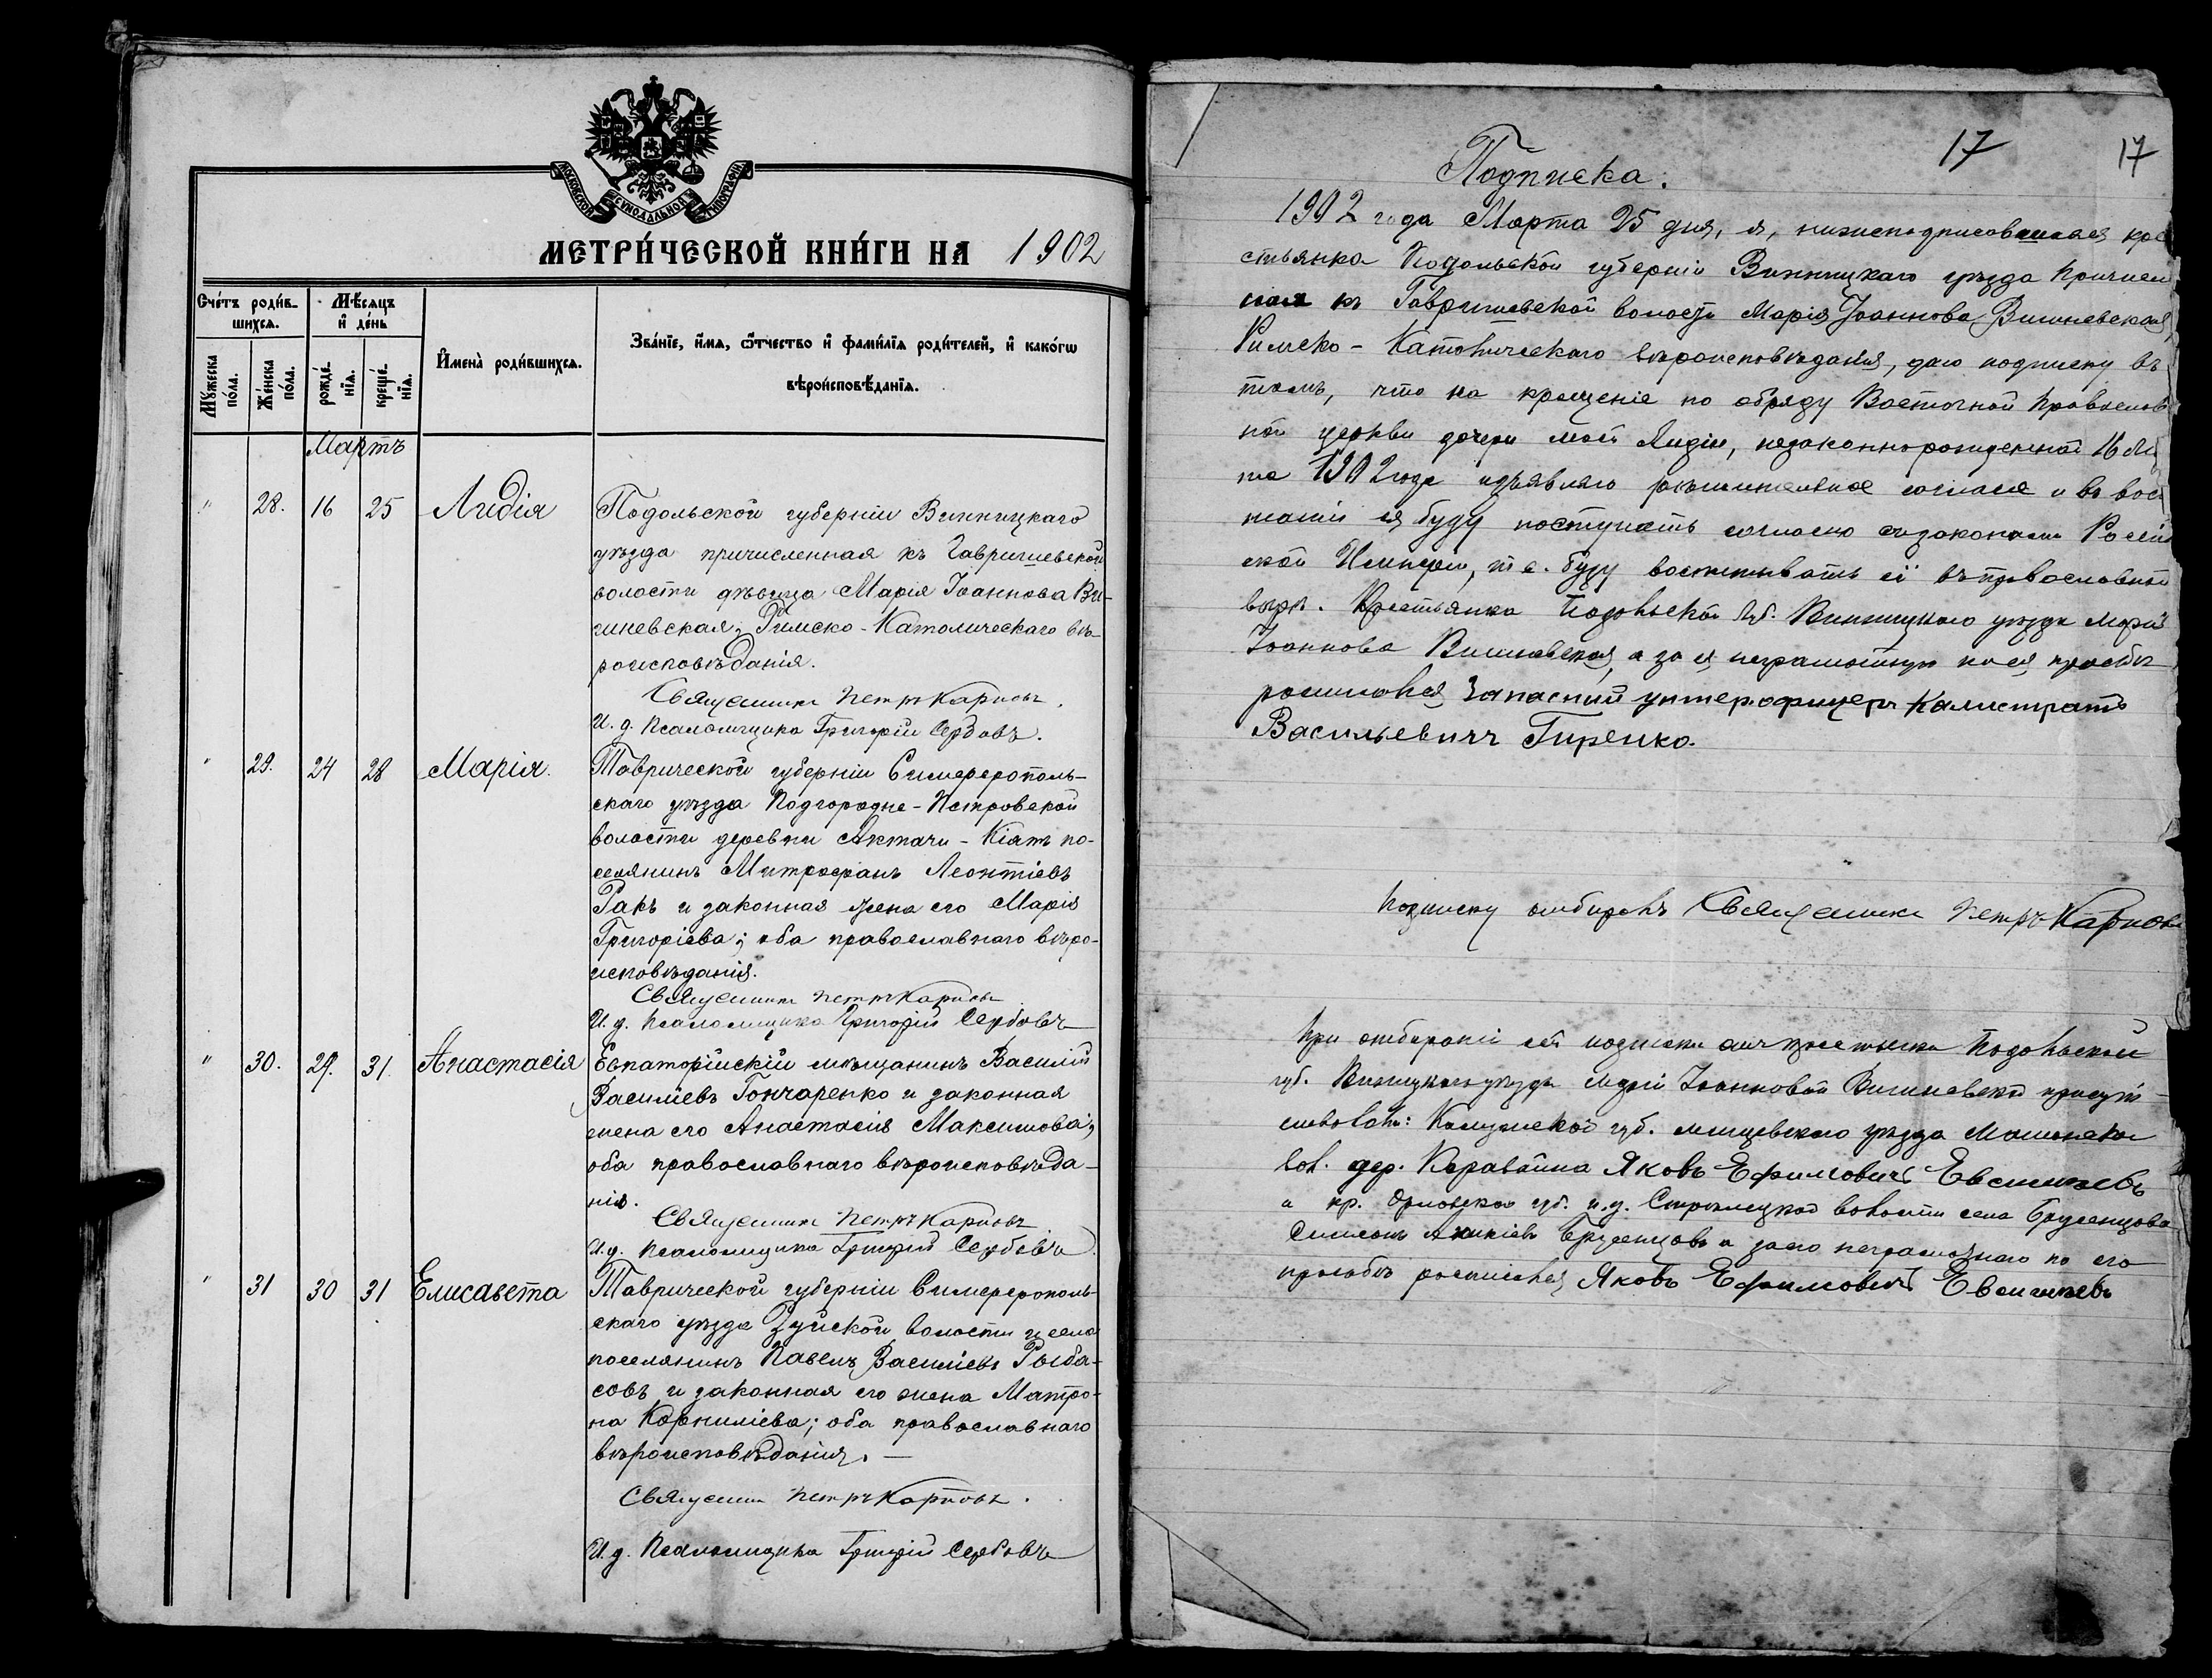 МОСКОВСКОЙ СѴНОДАЛЬНОЙ ТИПОГРАФІИ
МЕТРИ́ЧЕСКОЙ КНИ́ГИ НА 1902
Сче́тъ роди́в-
шихсѧ.
Мѣ́сѧцъ
и҆ де́нь
Мꙋ́жеска
по́ла.
Же́нска
по́ла.
рожде́-
нїѧ.
креще́-
нїѧ.
И҆мена̀ роди́вшихсѧ.
Зва́нїе, и҆́мѧ, ѻ҆́тчество и҆ фами́лїѧ роди́телей, и҆ како́гѡ
вѣроисповѣ́данїѧ.
Мартъ
" 28. 16 25 Лидія
Подольской губерніи Винницкаго
уѣзда причисленная къ Гавришевской
волости дѣвица Марія Іоаннова Ви-
шневская, Римско-Католическаго вѣ-
роисповѣданія.
Священникъ Петръ Карповъ.
И. д. Псаломщика Григорій Сербовъ.
" 29. 24 28 Марія.
Таврической губерніи Симферополь-
скаго уѣзда Подгородне-Петровской
волости деревни Актачи-Кіятъ по-
селянинъ Митрофанъ Леонтіевъ
Ракъ и законная жена его Марія
Григоріева; оба православнаго вѣро-
исповѣданія.
Священникъ Петръ Карповъ
И. д. Псаломщика Григорій Сербовъ
" 30. 29. 31. Анастасія
Евпаторійскій мѣщанинъ Василій
Василіевъ Гончаренко и законная
жена его Анастасія Максимова;
оба православнаго вѣроисповѣда-
нія.
Священникъ Петръ Карповъ.
И. д. Псаломщика Григорій Сербовъ.
" 31 30 31 Елисавета
Таврической губерніи Симферополь-
скаго уѣзда Зуйской волости и села
поселянинъ Павелъ Василіевъ Рыба-
совъ и законная его жена Матро-
на Корниліева; оба православнаго
вѣроисповѣданія. —
Священникъ Петръ Карповъ.
И. д. Псаломщика Григорій Сербовъ
17 17
Подписка.
1902 года Марта 25 дня, я, нижеподписовшаяся кре
стьянка Подольской губерніи Винницкаго уѣзда причислен
ная къ Гавришевской волости Марія Іоаннова Вишневская,
Римско-Католическаго вѣроисповѣданія, даю подписку въ
томъ, что на крещеніе по обряду Восточной Православ
ной церкви дочери моей Лидіи, незаконнорожденной 16 Ма
та 1902 года изъявляю рѣшительное согласіе и въ вос
таніи ея буду поступать согласно съ законами Россій
ской Имперіи, т. е. буду воспитывать её въ православной
вѣрѣ. Крестьянка Подольской губ. Винницкаго уѣзда Марія
Іоаннова Вишневская, а за ея неграмотную по ея просьбѣ
росписался Запасный унтерофицеръ Калистратъ
Васильевичъ Гиренко.
Подписку отбиралъ Священникъ Петръ Карповъ
При отбираніи сей подписки отъ крестьянки Подольской
губ. Винницкаго уѣзда Маріи Іоанновой Вишневской присут-
ствовали: Калужской губ. мещевскаго уѣзда
вол. дер. Каравайна Яковъ Ефимовичъ Евсигнѣевъ
и кр. Орловской губ. и. у. Стрелецкой волости села Бруенцова
Симеонъ Бруенцовъ а за него неграмотнаго по его
просьбѣ росписался Яковъ Ефимовичъ Евсигнѣевъ